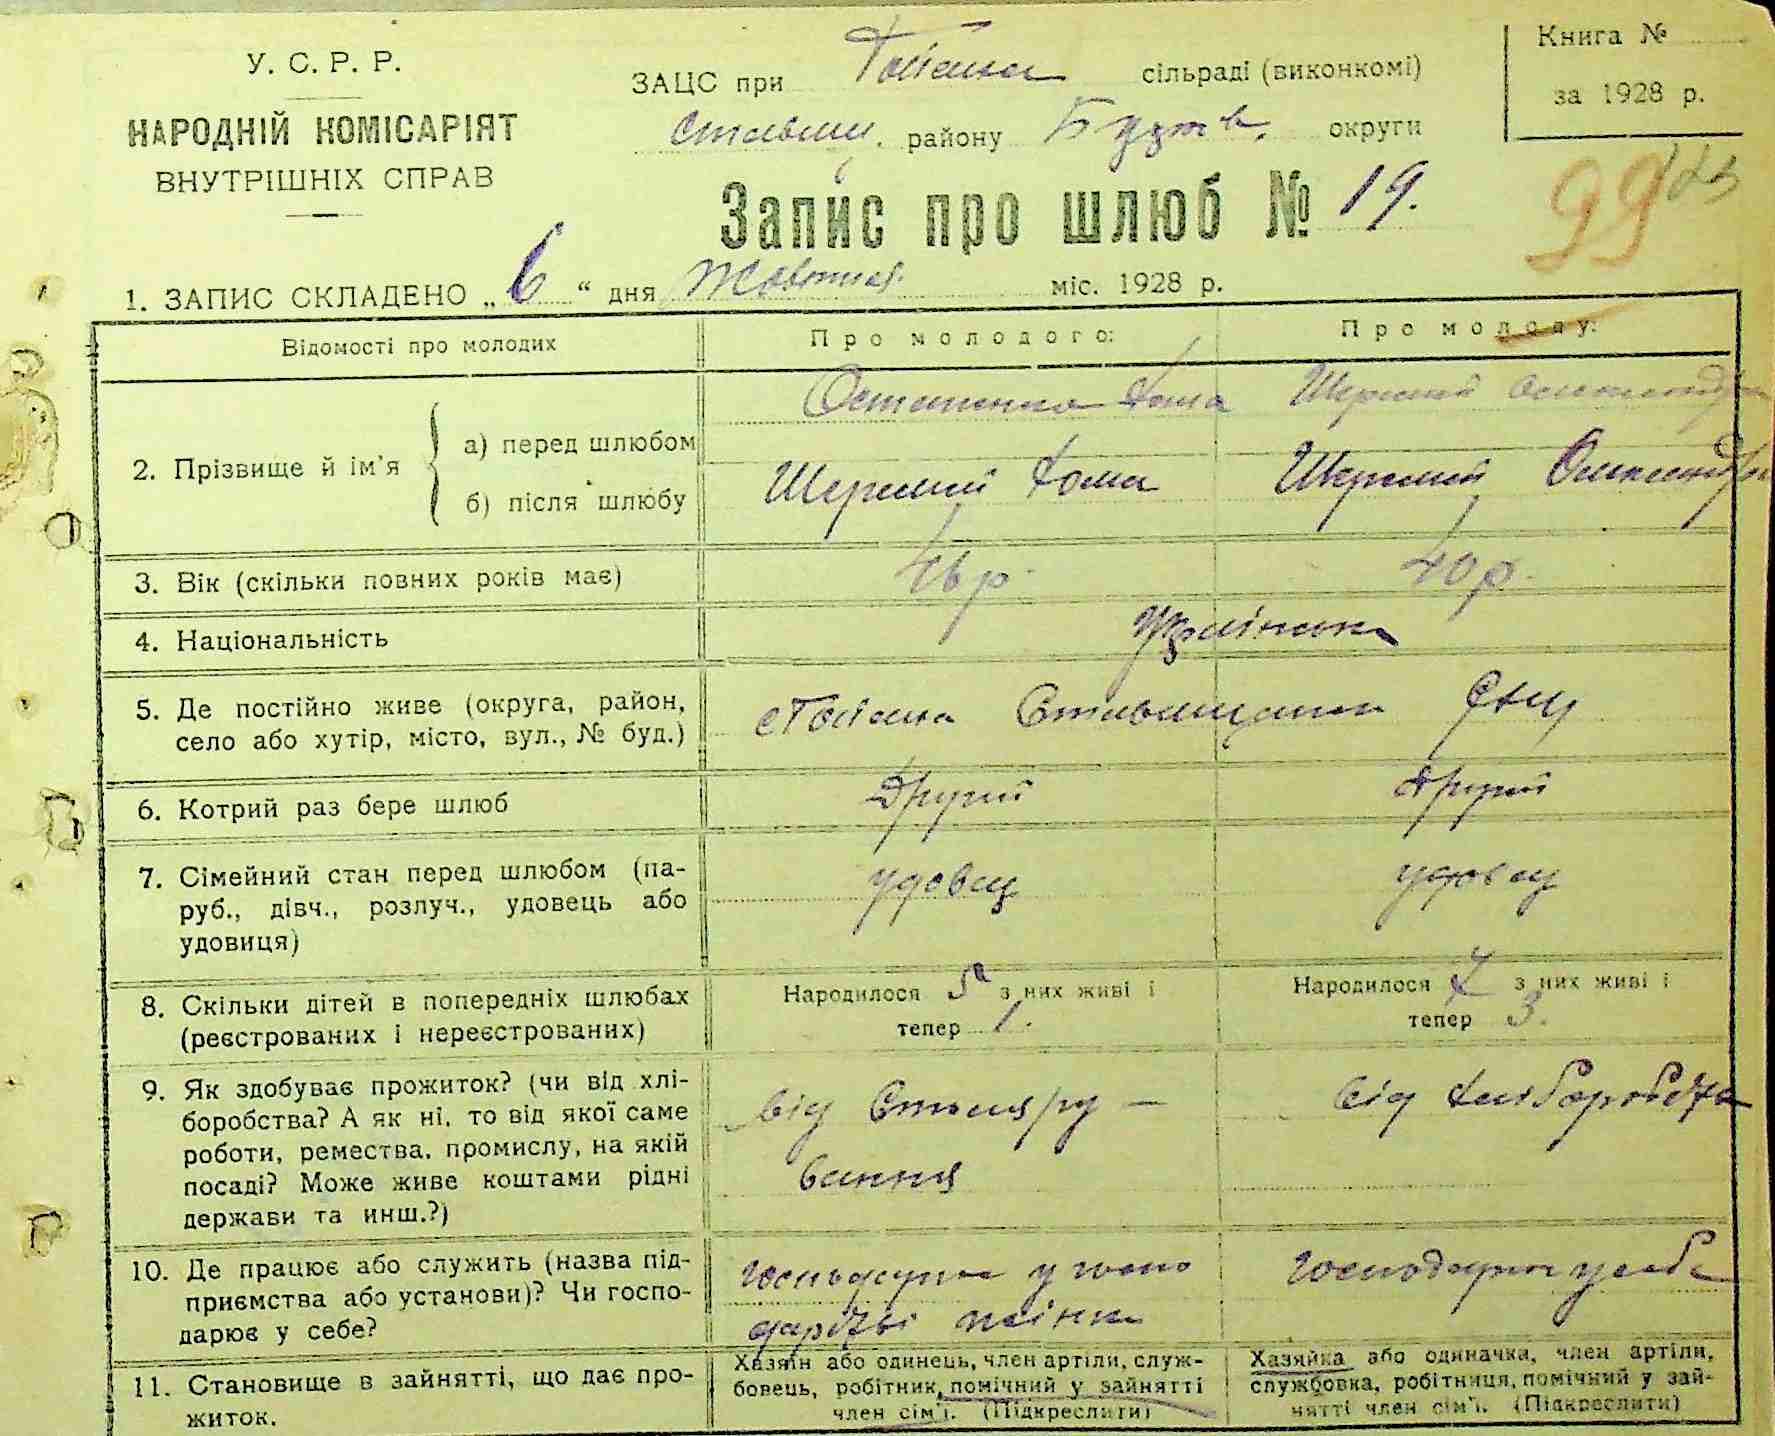 У. С. Р. Р.
НАРОДНІЙ КОМІСАРІЯТ
ВНУТРІШНІХ СПРАВ
ЗАЦС при сільраді (виконкомі)
району округи
Книга №
за 1928 р.
99
Запис про шлюб № 19.
1. ЗАПИС СКЛАДЕНО „ 6 “ дня Жовтня міс. 1928 р.
Відомості про молодих
Про молодого:
Про молоду:
2. Прізвище й ім'я
а) перед шлюбом
Остапенко Хома
б) після шлюбу
Хома
3. Вік (скільки повних років має)
46 р.
40 р.
4. Національність
Українська
5. Де постійно живе (округа, район,
село або хутір, місто, вул., № буд.)
6. Котрий раз бере шлюб
Другий
другий
7. Сімейний стан перед шлюбом (па-
руб., дівч., розлуч., удовець або
удовиця)
удовец
8. Скільки дітей в попередніх шлюбах
(реєстрованих і нереєстрованих)
Народилося 5 з них живі і
тепер 1.
Народилося 7 з них живі і
тепер 3.
9. Як здобуває прожиток? (чи від хлі-
боробства? А як ні, то від якої саме
роботи, ремества, промислу, на якій
посаді? Може живе коштами рідні
держави та инш.?)
від Столяру–
вання
від хліборобства
10. Де працює або служить (назва під-
приємства або установи)? Чи госпо-
дарює у себе?
господарює у госпо
дарстві жінки
господарює у себе
11. Становище в зайнятті, що дає про-
житок.
Хазяїн або одинець, член артіли, служ-
бовець, робітник, помічний у зайнятті
член сім'ї. (Підкреслити)
Хазяйка або одиначка, член артіли,
службовка, робітниця, помічний у зай-
нятті член сім'ї. (Підкреслити)